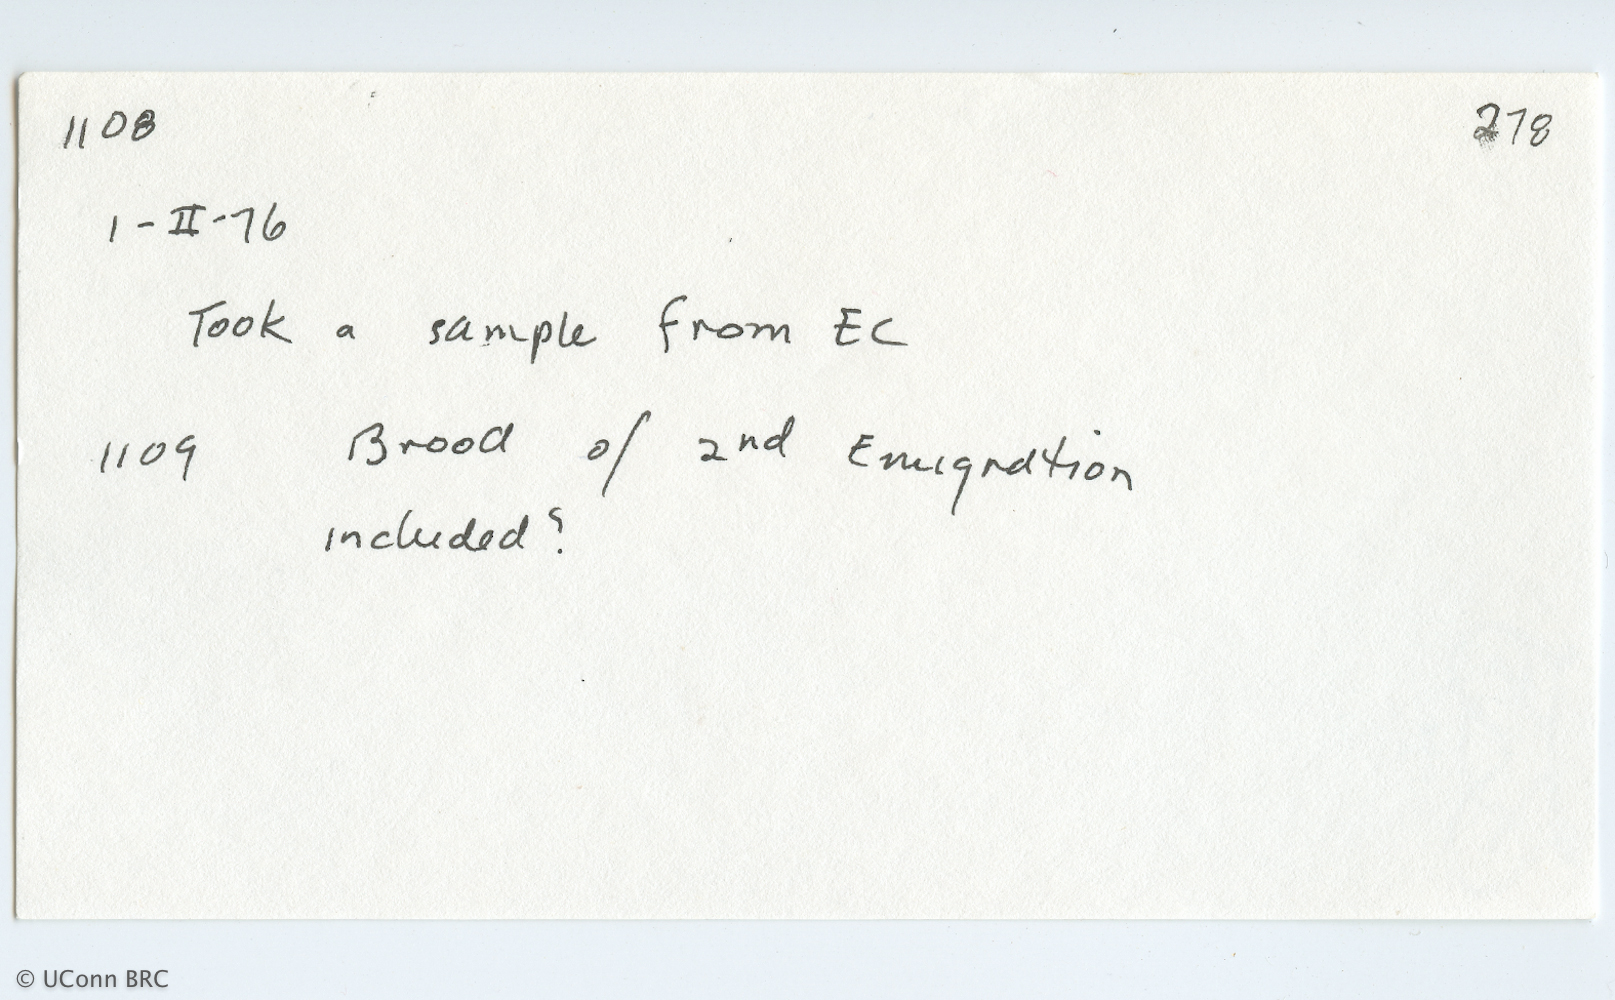 1108 278
1-II-76
Took a sample from EC
1109 Brood of 2nd Emigration
included?
© UConn BRC